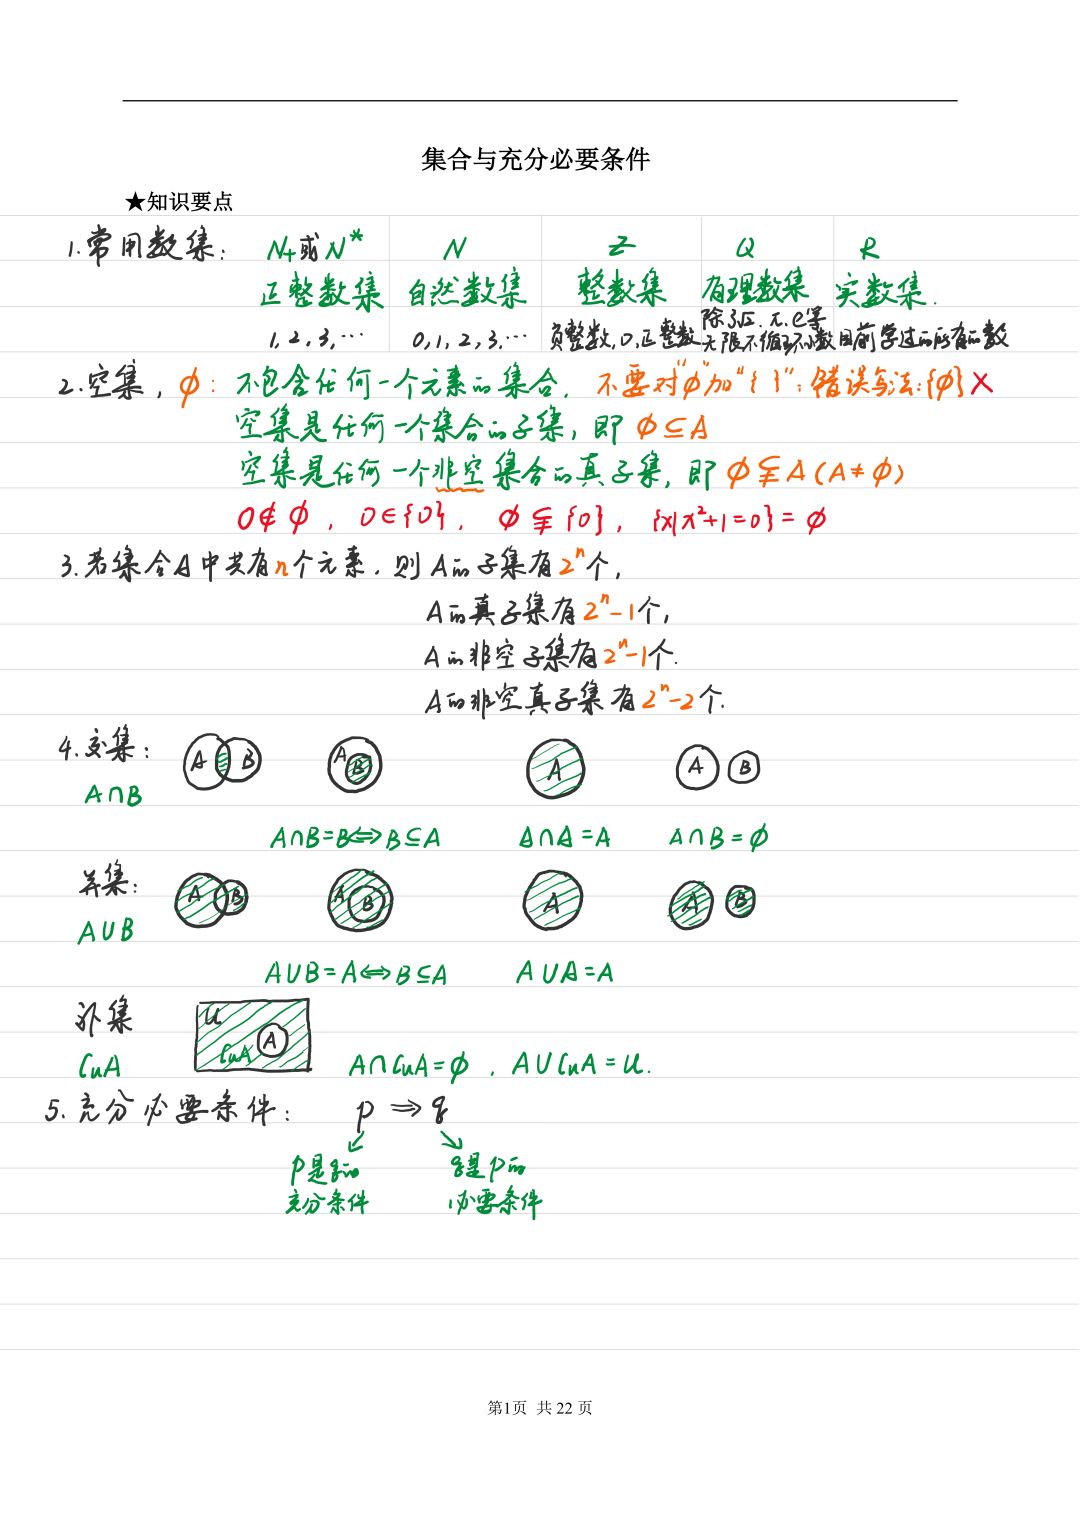 集合与充分必要条件
★知识要点
1.常用数集: N₊或N* N Z Q R
正整数集 自然数集 整数集 有理数集 实数集.
1,2,3,… 0,1,2,3,… 负整数,0,正整数 除√2.π.e等无限不循环小数 目前学过的所有的数
2.空集,φ: 不包含任何一个元素的集合. 不要对"φ"加"{ }":错误写法:{φ}×
空集是任何一个集合的子集,即 φ⊆A
空集是任何一个非空集合的真子集,即 φ⫋A(A≠φ)
0∉φ, 0∈{0}, φ⫋{0}, {x|x²+1=0}=φ
3.若集合A中共有n个元素.则A的子集有2ⁿ个,
A的真子集有2ⁿ-1个,
A的非空子集有2ⁿ-1个.
A的非空真子集有2ⁿ-2个.
4.交集: A B A B A A B
A∩B
A∩B=B⇔B⊆A A∩A=A A∩B=φ
并集: A B A B A A B
A∪B
A∪B=A⇔B⊆A A∪A=A
补集 U A CuA
CuA A∩CuA=φ. A∪CuA=U.
5.充分必要条件: p⇒q
p是q的 q是p的
充分条件 必要条件
第1页 共 22 页